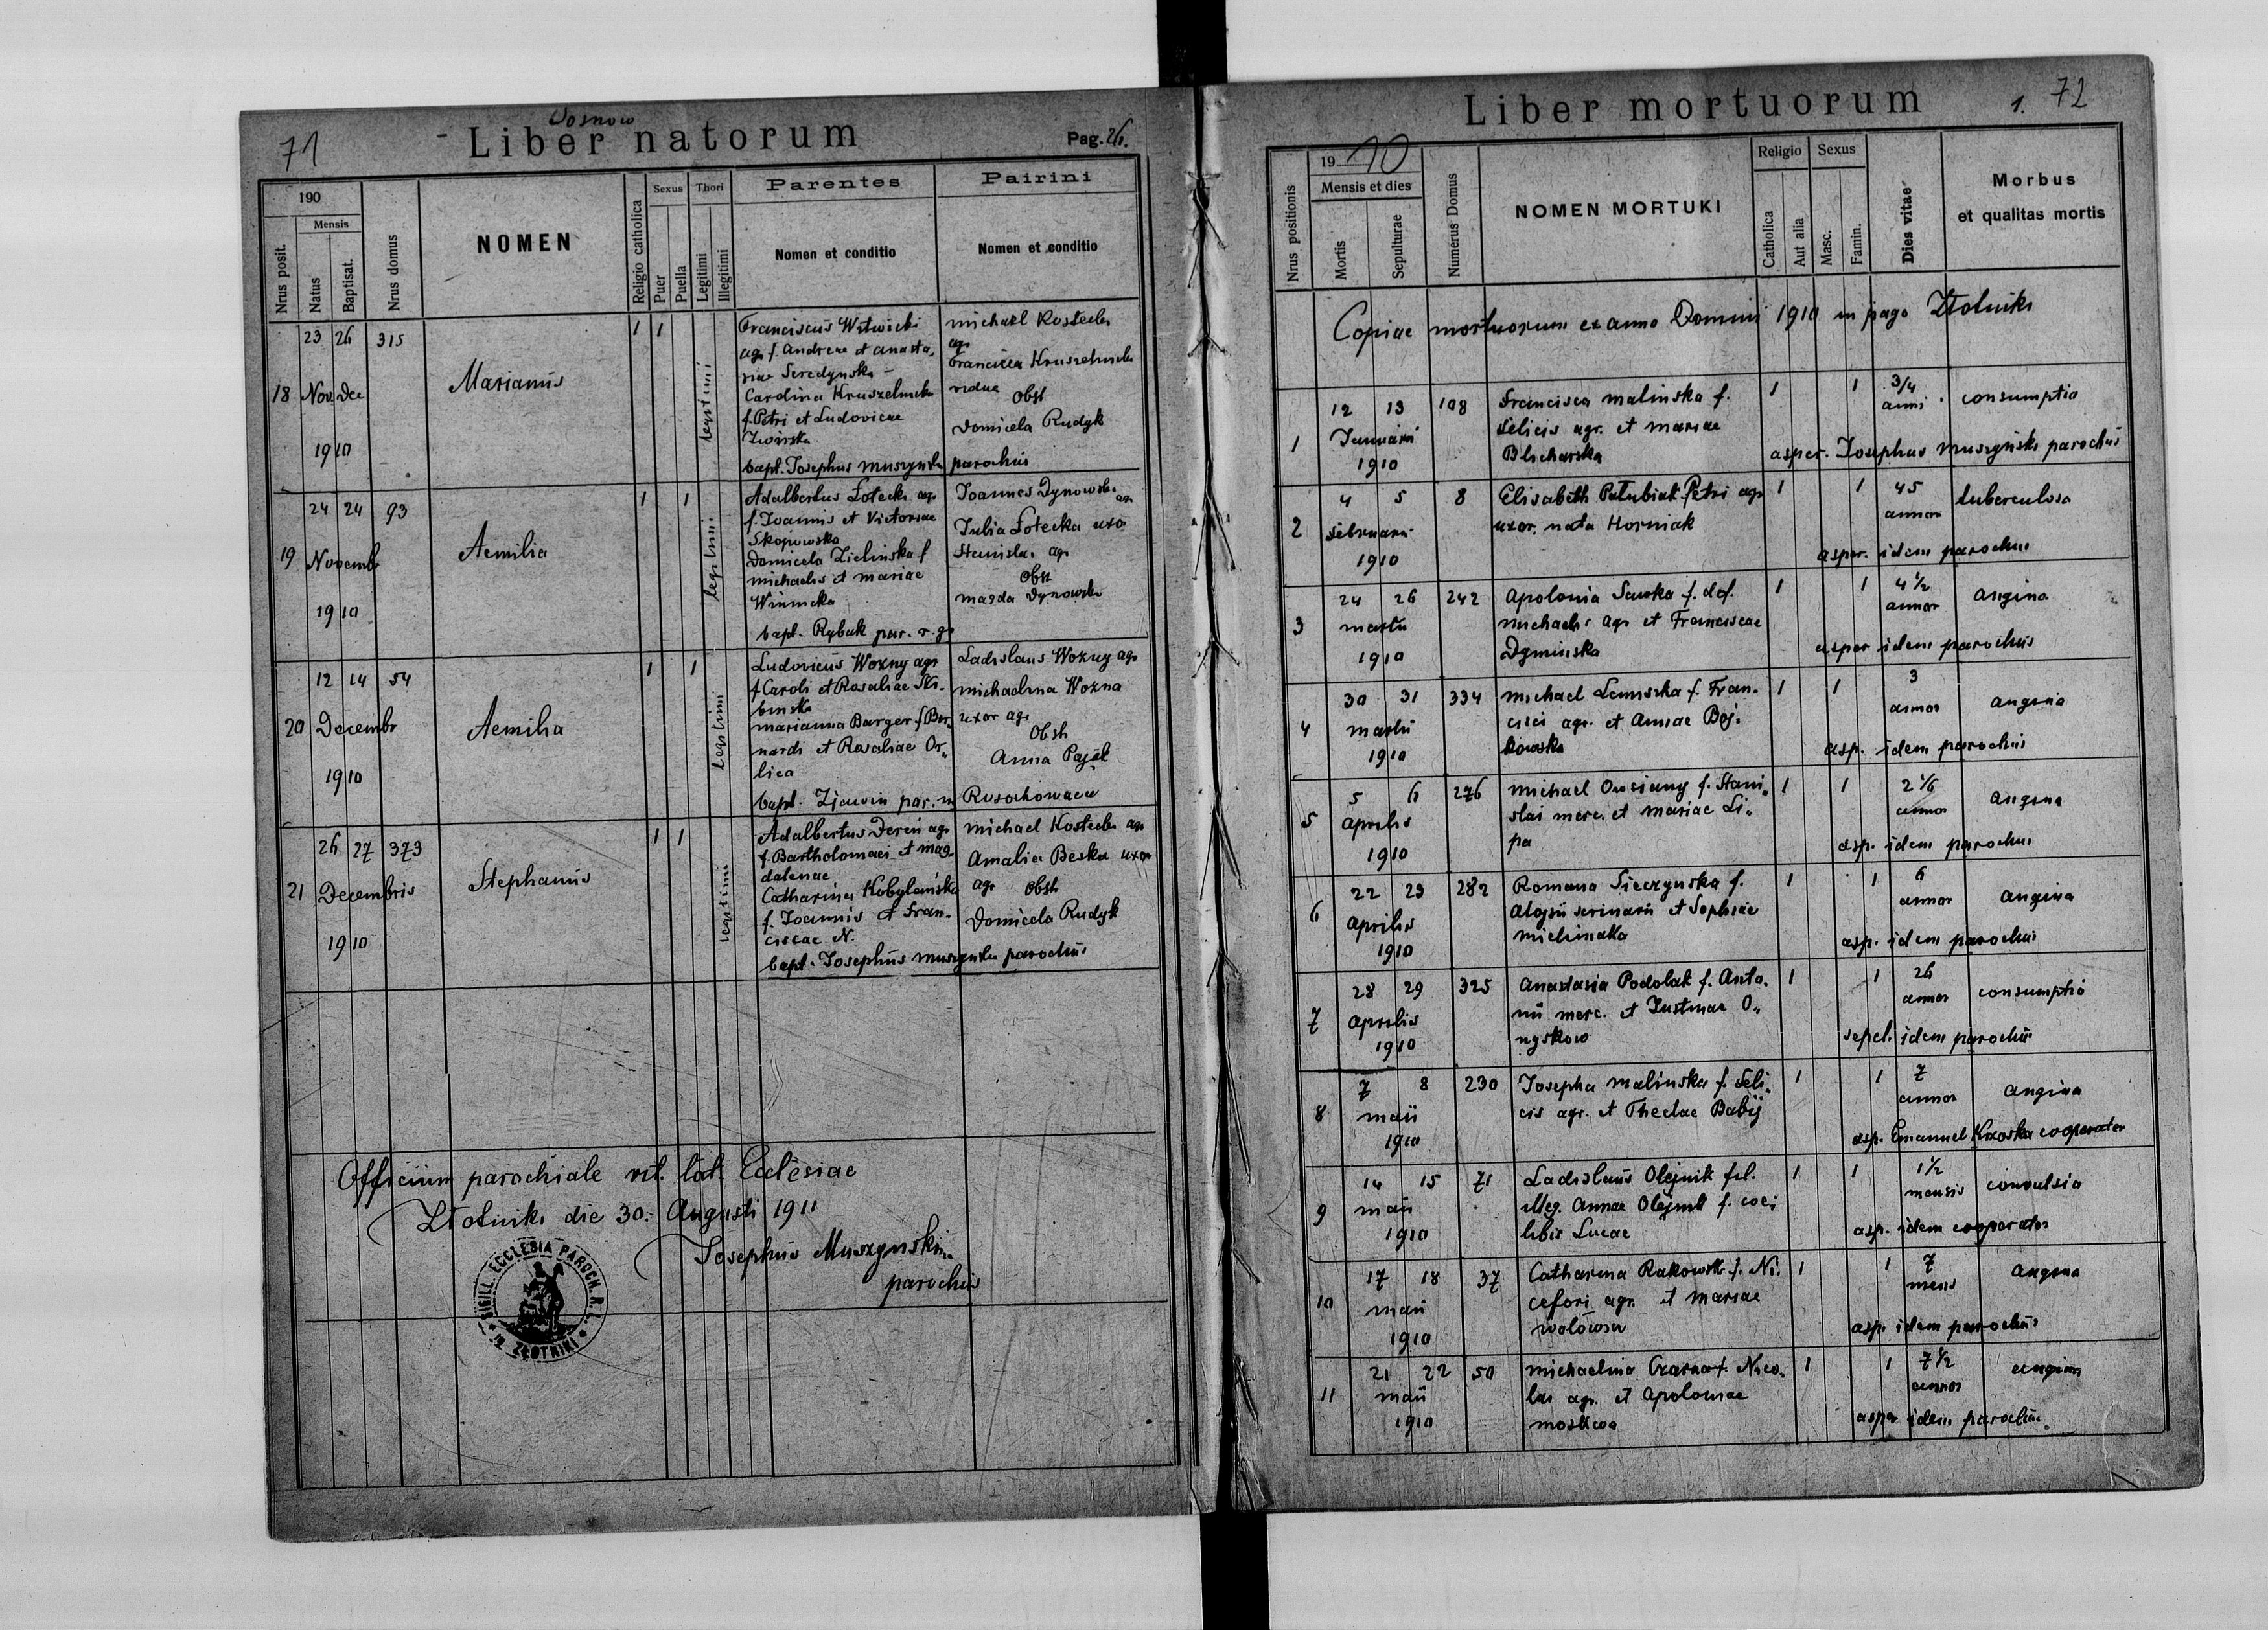 71
Sosnow
Liber natorum
Pag. 26.
190
Mensis
Nrus posit.
Natus
Baptisat.
Nrus domus
NOMEN
Religio catholica
Sexus
Puer
Puella
Thori
Legitimi
Illegitimi
Parentes
Nomen et conditio
Pairini
Nomen et conditio
18
23 26 315
Nov. Dec
1910
Marianus
1 1
legitimi
Franciscus Witwicki
agr f. Andreae et Anasta,
siae Seredynska -
Carolina Kruszelnicka
f. Petri et Ludovicae
Zwirska
bapt. Josephus Muszynski parochus
Michael Kostecki
agr
Francisca Kruszelnicka
vidua
Obst
Domicela Rudyk
19
24 24 93
Novembr
1910
Aemilia
1 1
legitimi
Adalbertus Lotecki agr
f. Joannis et Victoriae
Skopowska
Domicela Zielinska f
Michaelis et Mariae
Winnicka
bapt. Rybak par. r. g.
Joannes Dynowski agr
Julia Lotecka uxor
Stanislai agr
Obst
Magda Dynowska
20
12 14 54
Decembr
1910
Aemilia
1 1
legitimi
Ludovicus Wozny agr
f Caroli et Rosaliae Ski-
binska
Marianna Barger f Ber
nardi et Rosaliae Or,,
lica
bapt. Zjawin par. in Rosochowaciec
Ladislaus Wozny agr
Michaelina Wozna
uxor agr
Obst
Anna Pająk
21
26 27 373
Decembris
1910
Stephanus
1 1
legitimi
Adalbertus Deren agr
f. Bartholomaei et Mag
dalenae
Catharina Kobylanska
f. Joannis et Fran-
ciscae N.
bapt. Josephus Muszynski parochus
Michael Kostecki agr
Amalia Beska uxor
agr Obst
Domicela Rudyk
Officium parochiale rit. lat. Ecclesiae
Złotniki die 30. Augusti 1911
Josephus Muszynski
parochus
SIGILL. ECCLESIA PAROCH. R. L.
IN ZŁOTNIKI
Liber mortuorum
1. 72
Nrus positionis
1910
Mensis et dies
Mortis
Sepulturae
Numerus Domus
NOMEN MORTUKI
Religio
Catholica
Aut alia
Sexus
Masc.
Famin.
Dies vitae
Morbus
et qualitas mortis
Copiae mortuorum ex anno Domini 1910 in pago Złotniki
1
12 13 108
Januarii
1910
Francisca Malinska f.
Felicis agr. et Mariae
Blicharska
1 1
3/4
anni
consumptio
asper. Josephus Muszyński parochus
2
4 5 8
Februarii
1910
Elisabeth Patubiak Petri agr
uxor, nata Horniak
1 1
45
annor
tuberculosa
asper. idem parochus
3
24 26 242
Martii
1910
Apolonia Sawka f. def.
Michaelis agr et Franciscae
Dyminska
1 1
4 1/2
annor
angina
asper idem parochus
4
30 31 334
Martii
1910
Michael Lemiszka f. Fran-
cisci agr. et Annae Boj-
kowska
1 1
3
annor
angina
asp. idem parochus
5
5 6 276
Aprilis
1910
Michael Owsiany f. Stani,,
slai merc. et Mariae Li,,
pa
1 1
2 1/6
annor
angina
asp. idem parochus
6
22 23 282
Aprilis
1910
Romana Sieczynska f.
Aloysii serinarii et Sophiae
Michinaka
1 1
6
annor
angina
asp. idem parochus
7
28 29 325
Aprilis
1910
Anastasia Podolak f. Anto.
nii merc. et Justinae O,,
nyskow
1 1
26
annor
consumptio
sepel. idem parochus
8
7 8 230
Maii
1910
Josepha Malinska f. Feli,,
cis agr. et Theclae Babij
1 1
7
annor
angina
asp. Emanuel Krzoska cooperator
9
14 15 71
Maii
1910
Ladislaus Olejnik fil.
illeg. Annae Olejnik f. coe,
libis Lucae
1 1
1 1/2
mensis
convulsia
asp. idem cooperator
10
17 18 37
Maii
1910
Catharina Rakowski f. Ni,
cefori agr. et Mariae
Wolowsa
1 1
7
mens
angina
asp. idem parochus
11
21 22 50
Maii
1910
Michaelina Czarna f. Nico,
lai agr. et Apoloniae
Moskwa
1 1
7 1/2
annor
angina
asper idem parochus.